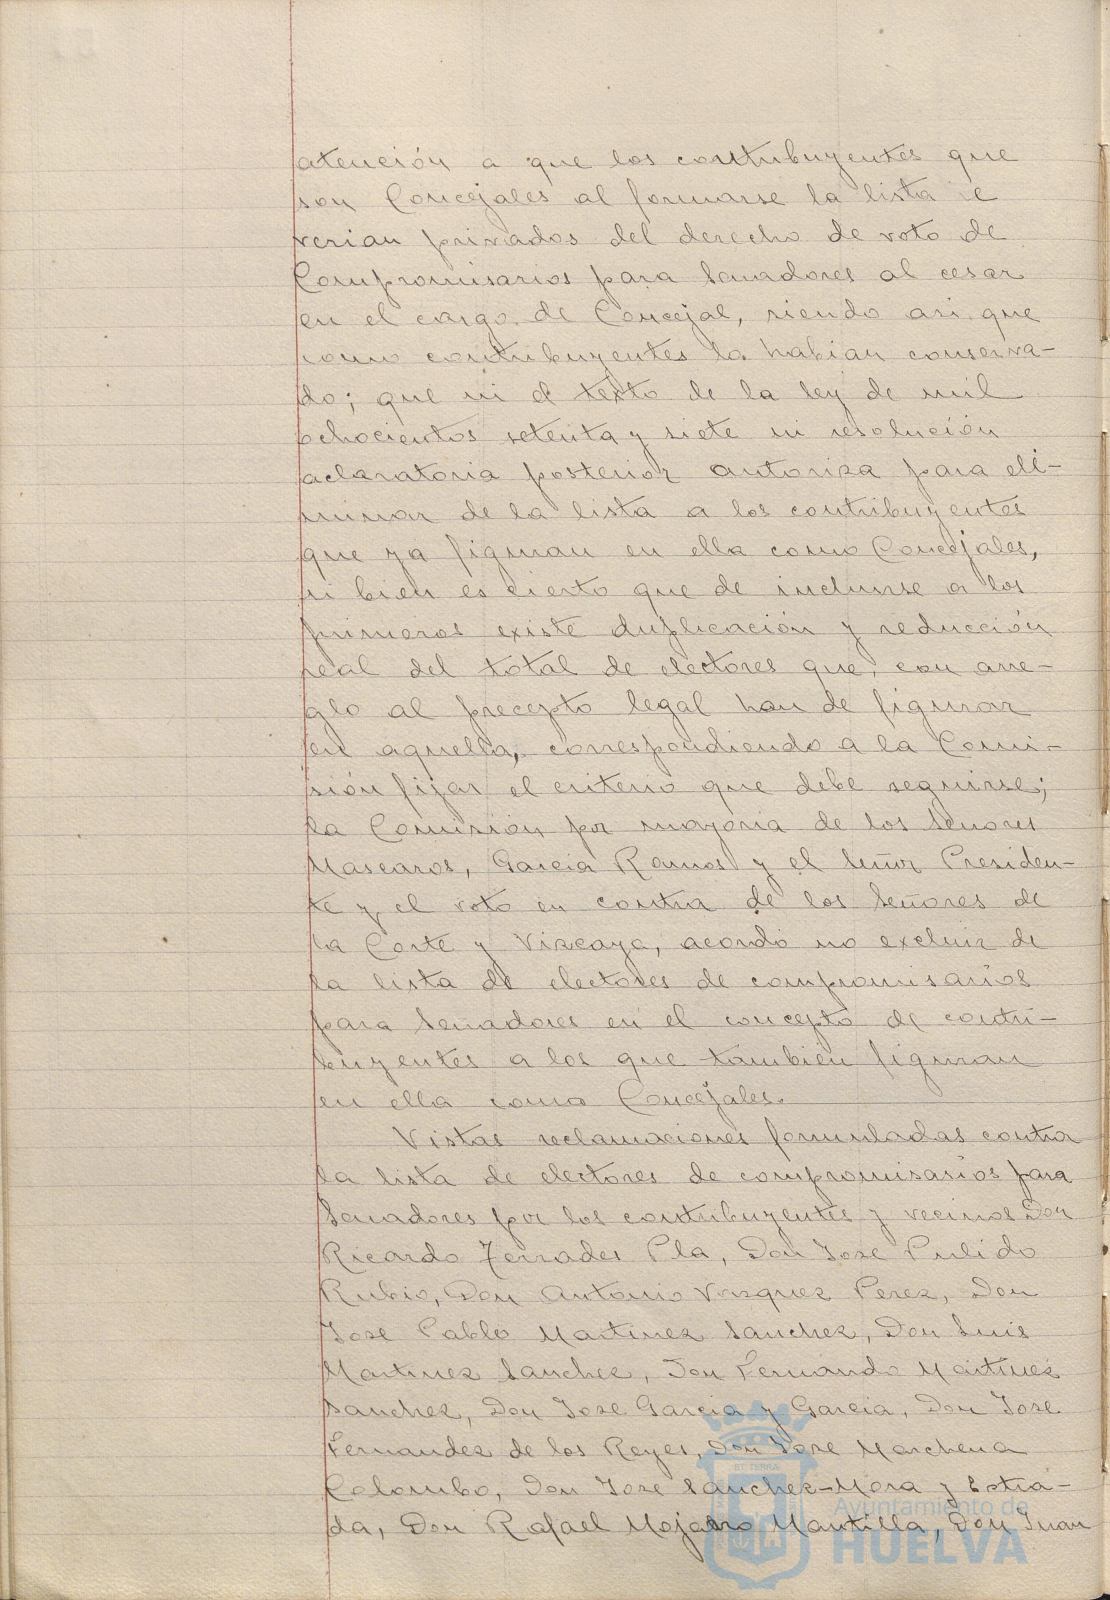 atención a que los contribuyentes que
son Concejales al formarse la lista se
verian privados del derecho de voto de
Compromisarios para Senadores al cesar
en el cargo de Concejal, siendo asi que
como contribuyentes lo habian conserva-
do; que ni el texto de la ley de mil
ochocientos setenta y siete ni resolución
aclaratoria posterior autoriza para eli-
minar de la lista a los contribuyentes
que ya figuran en ella como Concejales,
si bien es cierto que de incluirse a los
primeros existe duplicación y reducción
real del total de electores que, con arre-
glo al precepto legal han de figurar
en aquella, correspondiendo a la Comi-
sión fijar el criterio que debe seguirse;
la Comisión por mayoria de los Senores
Mascaros, Garcia Ramos y el Señor Presiden-
te y el voto en contra de los Señores de
la Corte y Vizcaya, acordó no excluir de
la lista de electores de compromisarios
para Senadores en el concepto de contri-
buyentes a los que tambien figuran
en ella como Concejales.
Vistas reclamaciones formuladas contra
la lista de electores de compromisarios para
Senadores por los contribuyentes y vecinos Don
Ricardo Terrades Pla, Don Jose Pulido
Rubio, Don Antonio Vazquez Perez, Don
Jose Pablo Martinez Sanchez, Don Luis
Martinez Sanchez, Don Fernando Martinez
Sanchez, Don Jose Garcia y Garcia, Don Jose
Fernandez de los Reyes, Don Jose Marchena
Colombo, Don Jose Sanchez-Mora y Estra-
da, Don Rafael Mojarro Mantilla, Don Juan
Ayuntamiento de
HUELVA